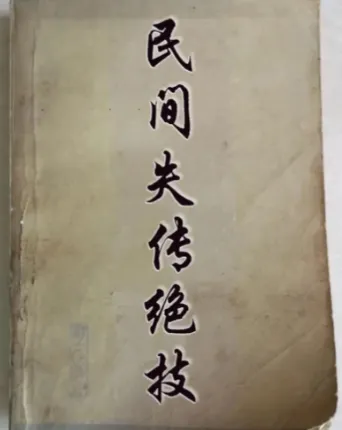 民间失传绝技